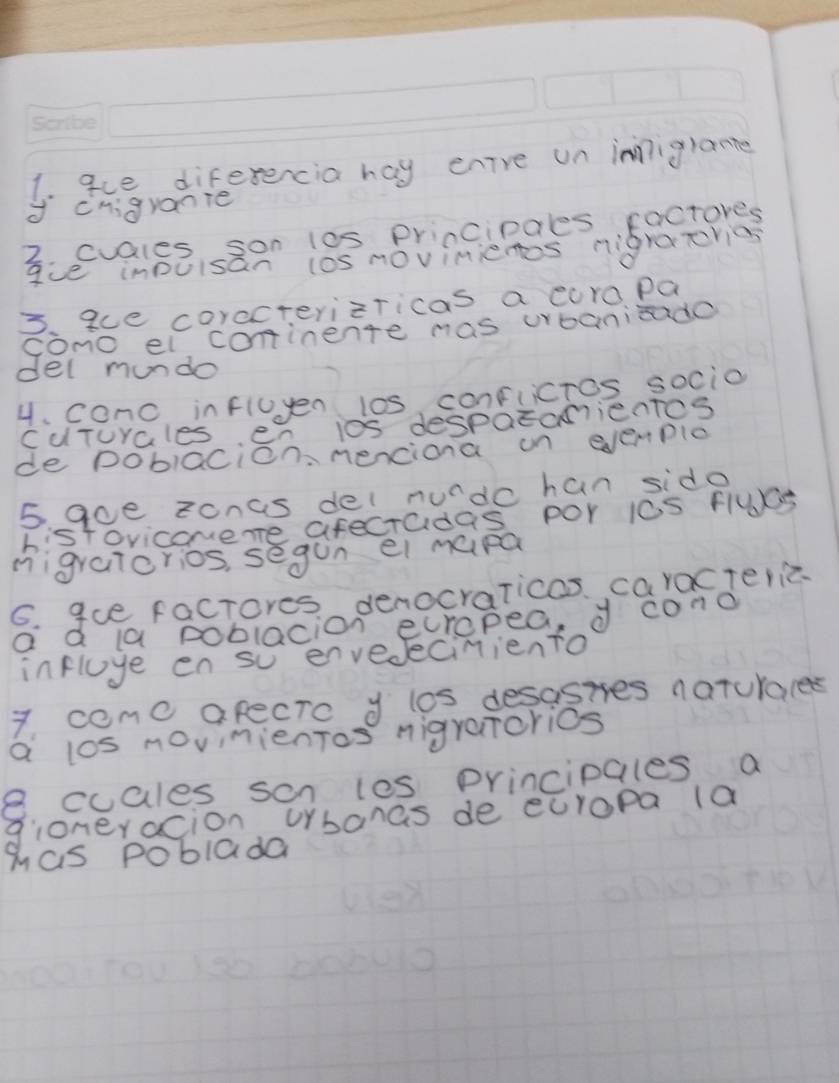 Scribe
1. que diferencia hay entre un inmigrante
y emigrante
2. cuales son los principales factores
que impulsan los movimientos migratorios
3. que corocterizticas a europa
como el continente mas urbanizado
del mundo
4. como influyen los conflictos socio
cuturales en los despazamientos
de poblacion. menciona un ejemplo
5. que zonas del mundo han sido
historicamente afectadas por los flujos
migratorios, segun el mapa
6. que factores democraticos caracteriz
a a la poblacion europea. y como
influye en su envejecimiento
7. como afecto y los desastres naturales
a los movimientos migratorios
8 cuales son los principales a
glomeracion urbanas de europa la
mas poblada